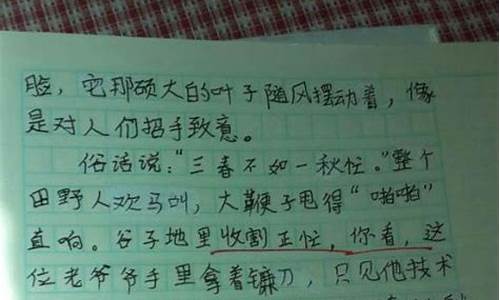 脸，它那硕大的叶子随风摆动着，像
是对人们招手致意。
俗话说：“三春不如一秋忙。”整个
田野人欢马叫，大鞭子甩得“啪啪”
直响。谷子地里收割正忙，你看，这
位老爷爷手里拿着镰刀，只见他技术